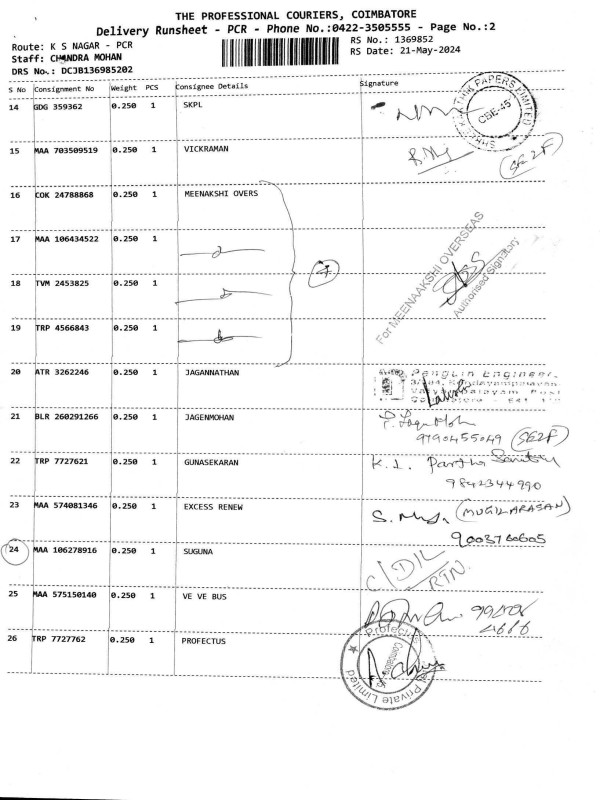 THE PROFESSIONAL COURIERS, COIMBATORE
Delivery Runsheet - PCR - Phone No.:0422-3505555 - Page No.:2
Route: K S NAGAR - PCR
RS No.: 1369852
Staff: CHANDRA MOHAN
RS Date: 21-May-2024
DRS No.: DCJB136985202
S No Consignment No Weight PCS Consignee Details Signature
14 GDG 359362 0.250 1 SKPL
PAPERS LIMITED
CBE-45
15 MAA 703509519 0.250 1 VICKRAMAN
(SE2F)
16 COK 24788868 0.250 1 MEENAKSHI OVERS
17 MAA 106434522 0.250 1
18 TVM 2453825 0.250 1
19 TRP 4566843 0.250 1
4
For MEENAAKSHI OVERSEAS
Authorised Signatory
20 ATR 3262246 0.250 1 JAGANNATHAN
Penguin Engineer
21 BLR 260291266 0.250 1 JAGENMOHAN
9790455049 (SE2F)
22 TRP 7727621 0.250 1 GUNASEKARAN
9842344990
23 MAA 574081346 0.250 1 EXCESS RENEW
(MUGILARASAN)
9003760605
24 MAA 106278916 0.250 1 SUGUNA
C/D/L
RTN.
25 MAA 575150140 0.250 1 VE VE BUS
26 TRP 7727762 0.250 1 PROFECTUS
Private Limited